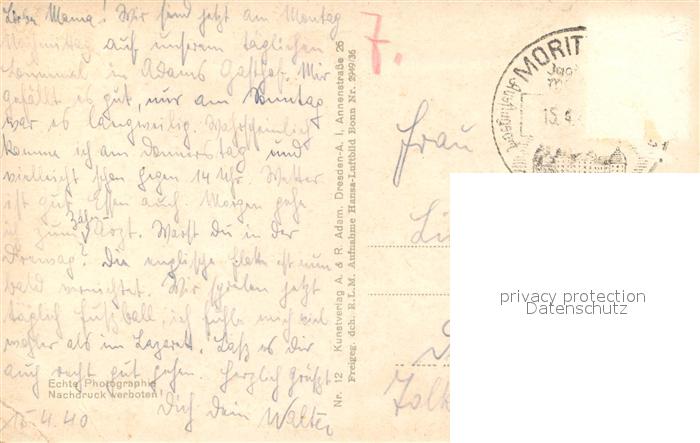 Liebe Mama! Wir sind jetzt am Montag
Nachmittag auf unserem täglichen
Bummel in Adams Gasthof. Mir
gefällt es gut, nur am Sonntag
war es langweilig. Wahrscheinlich
komme ich am Donnerstag und
vielleicht schon gegen 14 Uhr. Wetter
ist gut, Essen auch. Morgen gehe
ich zum Zahn-Arzt. Warst du in der
Die englische Flotte ist nun
bald vernichtet. Wir spielen jetzt
täglich Fußball, ich fühle mich viel
wohler als im Lazarett. Laß es dir
auch recht gut gehen. Herzlich grüßt
Dich dein Walter
15.4.40
Echte Photographie
Nachdruck verboten!
Nr. 12 Kunstverlag A. & R. Adam, Dresden-A. I, Annenstraße 26
Freigeg. dch. R.L.M. Aufnahme Hansa-Luftbild Bonn Nr. 2949/36
7.
MORIT
Jag
15.4.
Frau
privacy protection
Datenschutz